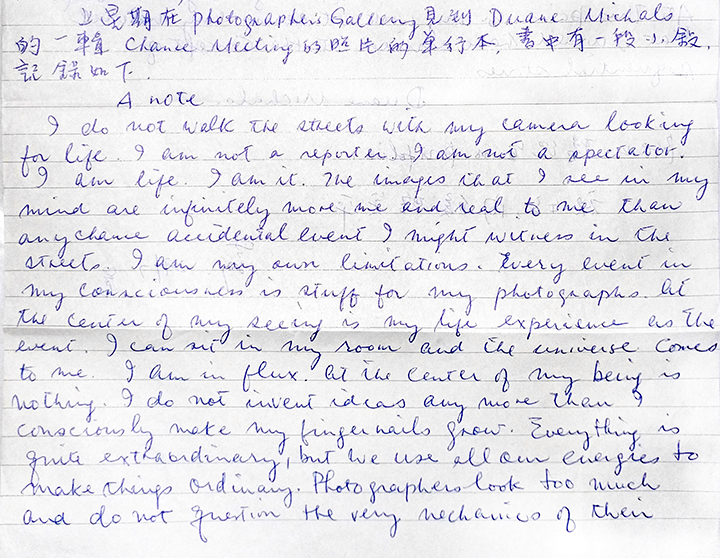 上星期在 photographer's Gallery 見到 Duane Michals
的一輯 Chance Meeting 的照片的單行本, 書中有一段小叙,
記錄如下.
A note
I do not walk the streets with my camera looking
for life. I am not a reporter. I am not a spectator.
I am life I am it. The images that I see in my
mind are infinitely more me and real to me than
any chance accidental event I might witness in the
streets. I am my own limitations. Every event in
my consciousness is stuff for my photographs. At
the center of my seeing is my life experience as the
event. I can sit in my room and the universe comes
to me. I am in flux. At the center of my being is
nothing. I do not invent ideas any more than I
consciously make my fingernails grow. Everything is
quite extraordinary, but we use all our energies to
make things ordinary. Photographers look too much
and do not question the very mechanics of their